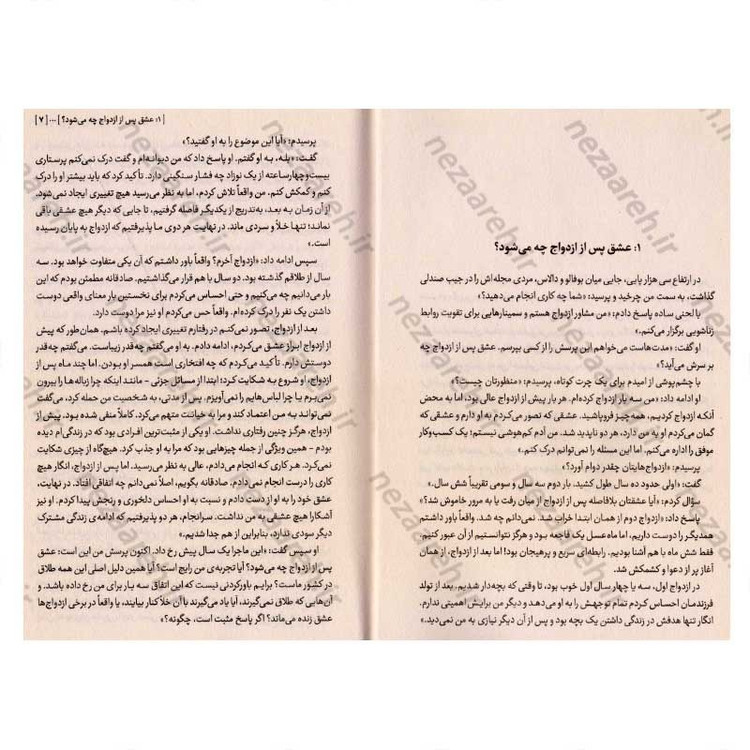 ۱: عشق پس از ازدواج چه می‌شود؟
در ارتفاع سی هزار پایی، جایی میان بوفالو و دالاس، مردی مجله‌اش را در جیب صندلی
گذاشت، به سمت من چرخید و پرسید: «شما چه کاری انجام می‌دهید؟»
با لحنی ساده پاسخ دادم: «من مشاور ازدواج هستم و سمینارهایی برای تقویت روابط
زناشویی برگزار می‌کنم.»
او گفت: «مدت‌هاست می‌خواهم این پرسش را از کسی بپرسم. عشق پس از ازدواج چه
بر سرش می‌آید؟»
با چشم‌پوشی از امیدم برای یک چرت کوتاه، پرسیدم: «منظورتان چیست؟»
او ادامه داد: «من سه بار ازدواج کرده‌ام. هر بار پیش از ازدواج عالی بود، اما به محض
آنکه ازدواج کردیم، همه‌چیز فروپاشید. عشقی که تصور می‌کردم به او دارم و عشقی که
گمان می‌کردم او به من دارد، هر دو ناپدید شد. من آدم کم‌هوشی نیستم؛ یک کسب‌وکار
موفق را اداره می‌کنم، اما این مسئله را نمی‌توانم درک کنم.»
پرسیدم: «ازدواج‌هایتان چقدر دوام آورد؟»
گفت: «اولی حدود ده سال طول کشید. بار دوم سه سال و سومی تقریباً شش سال.»
سؤال کردم: «آیا عشقتان بلافاصله پس از ازدواج از میان رفت یا به مرور خاموش شد؟»
پاسخ داد: «ازدواج دوم از همان ابتدا خراب شد. نمی‌دانم چه شد. واقعاً باور داشتم
همدیگر را دوست داریم، اما ماه عسل یک فاجعه بود و هرگز نتوانستیم از آن عبور کنیم.
فقط شش ماه با هم آشنا بودیم. رابطه‌ای سریع و پرهیجان بود! اما بعد از ازدواج، از همان
آغاز پر از دعوا و کشمکش شد.
در ازدواج اول، سه یا چهار سال اول خوب بود، تا وقتی که بچه‌دار شدیم. بعد از تولد
فرزندمان احساس کردم تمام توجهش را به او می‌دهد و دیگر من برایش اهمیتی ندارم.
انگار تنها هدفش در زندگی داشتن یک بچه بود و پس از آن دیگر نیازی به من نمی‌دید.»
| ۱: عشق پس از ازدواج چه می‌شود؟ | ... [ ۷ ]
پرسیدم: «آیا این موضوع را به او گفتید؟»
گفت: «بله، به او گفتم. او پاسخ داد که من دیوانه‌ام و گفت درک نمی‌کنم پرستاری
بیست‌وچهارساعته از یک نوزاد چه فشار سنگینی دارد. تأکید کرد که باید بیشتر او را درک
کنم و کمکش کنم. من واقعاً تلاش کردم، اما به نظر می‌رسید هیچ تغییری ایجاد نمی‌شود.
از آن زمان به بعد، به‌تدریج از یکدیگر فاصله گرفتیم، تا جایی که دیگر هیچ عشقی باقی
نماند؛ تنها خلأ و سردی ماند. در نهایت هر دوی ما پذیرفتیم که ازدواج به پایان رسیده
است.»
سپس ادامه داد: «ازدواج آخرم؟ واقعاً باور داشتم که آن یکی متفاوت خواهد بود. سه
سال از طلاقم گذشته بود. دو سال با هم قرار می‌گذاشتیم. صادقانه مطمئن بودم که این
بار می‌دانیم چه می‌کنیم و حتی احساس می‌کردم برای نخستین بار معنای واقعی دوست
داشتن یک نفر را درک کرده‌ام. واقعاً حس می‌کردم او نیز مرا دوست دارد.
بعد از ازدواج، تصور نمی‌کنم در رفتارم تغییری ایجاد کرده باشم. همان‌طور که پیش
از ازدواج ابراز عشق می‌کردم، ادامه دادم. به او می‌گفتم چه‌قدر زیباست. می‌گفتم چه‌قدر
دوستش دارم. تأکید می‌کردم که چه افتخاری است همسر او بودن. اما چند ماه پس از
ازدواج، او شروع به شکایت کرد؛ ابتدا از مسائل جزئی - مانند اینکه چرا زباله‌ها را بیرون
نمی‌برم یا چرا لباس‌هایم را نمی‌آویزم. پس از مدتی، به شخصیت من حمله کرد، می‌گفت
نمی‌تواند به من اعتماد کند و مرا به خیانت متهم می‌کرد. کاملاً منفی شده بود. پیش از
ازدواج، هرگز چنین رفتاری نداشت. او یکی از مثبت‌ترین افرادی بود که در زندگی‌ام دیده
بودم - همین ویژگی از جمله چیزهایی بود که مرا به او جذب کرد. هیچ‌گاه از چیزی شکایت
نمی‌کرد. هر کاری که انجام می‌دادم، عالی به نظر می‌رسید. اما پس از ازدواج، انگار هیچ
کاری را درست انجام نمی‌دادم. صادقانه بگویم، اصلاً نمی‌دانم چه اتفاقی افتاد. در نهایت،
عشق خود را به او از دست دادم و نسبت به او احساس دلخوری و رنجش پیدا کردم. او نیز
آشکارا هیچ عشقی به من نداشت. سرانجام، هر دو پذیرفتیم که ادامه‌ی زندگی مشترک
دیگر سودی ندارد، بنابراین از هم جدا شدیم.»
او سپس گفت: «این ماجرا یک سال پیش رخ داد. اکنون پرسش من این است: عشق
پس از ازدواج چه می‌شود؟ آیا تجربه‌ی من رایج است؟ آیا همین دلیل اصلی این همه طلاق
در کشور ماست؟ برایم باورکردنی نیست که این اتفاق سه بار برای من رخ داده باشد. و
آن‌هایی که طلاق نمی‌گیرند، آیا یاد می‌گیرند با آن خلأ کنار بیایند، یا واقعاً در برخی ازدواج‌ها
عشق زنده می‌ماند؟ اگر پاسخ مثبت است، چگونه؟»
nezaareh.ir